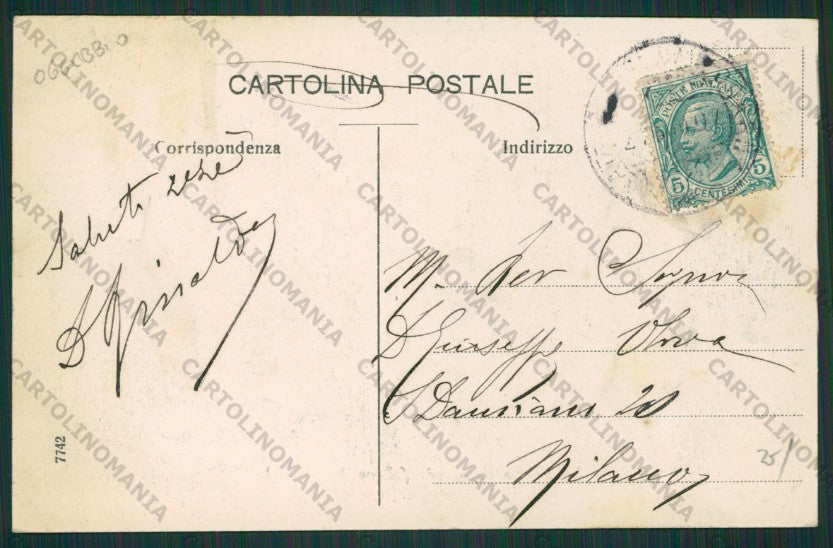 OGGEBBIO
CARTOLINA POSTALE
Corrispondenza
Indirizzo
POSTE ITALIANE
5 5
CENTESIMI
Saluti
D Rinaldo
M. Rev Signor
D Giuseppe
S Damiano 20
Milano
7742
25/
CARTOLINOMANIA